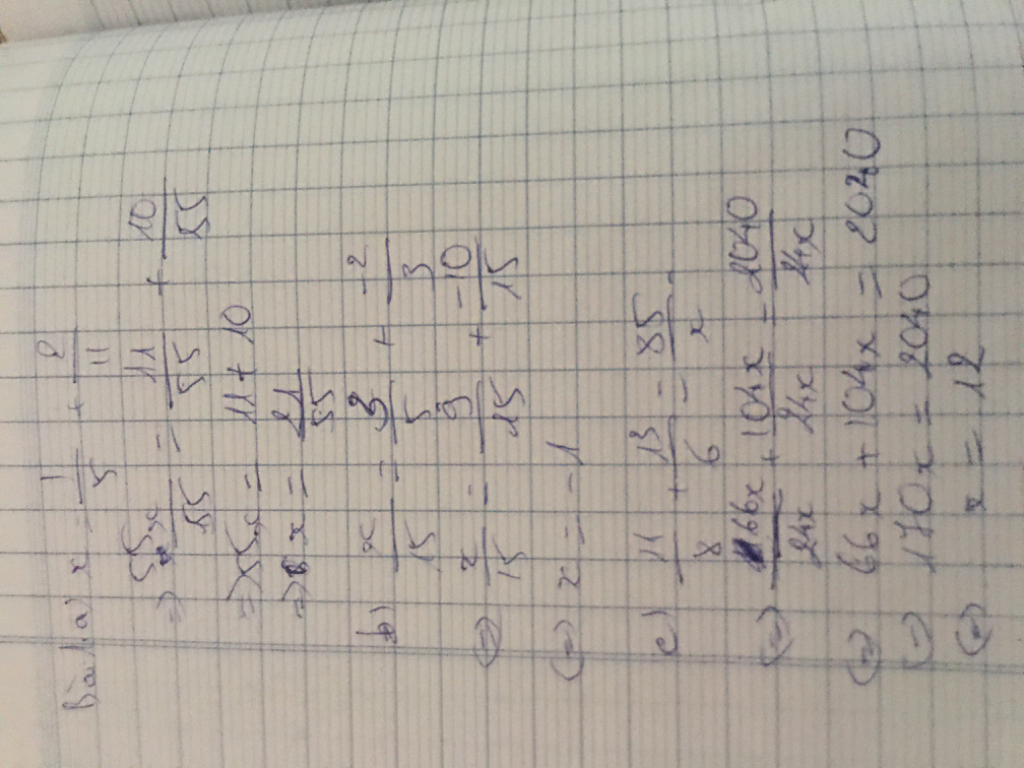 Bài 1 a) x = 1/5 + 2/11
=> 55x/55 = 11/55 + 10/55
=> 55x = 11 + 10
=> x = 21/55
b) x/15 = 3/5 + -2/3
<=> x/15 = 9/15 + -10/15
<=> x = -1
c) 11/8 + 13/6 = 85/x
<=> 66x/24x + 104x/24x = 2040/24x
<=> 66x + 104x = 2040
<=> 170x = 2040
<=> x = 12